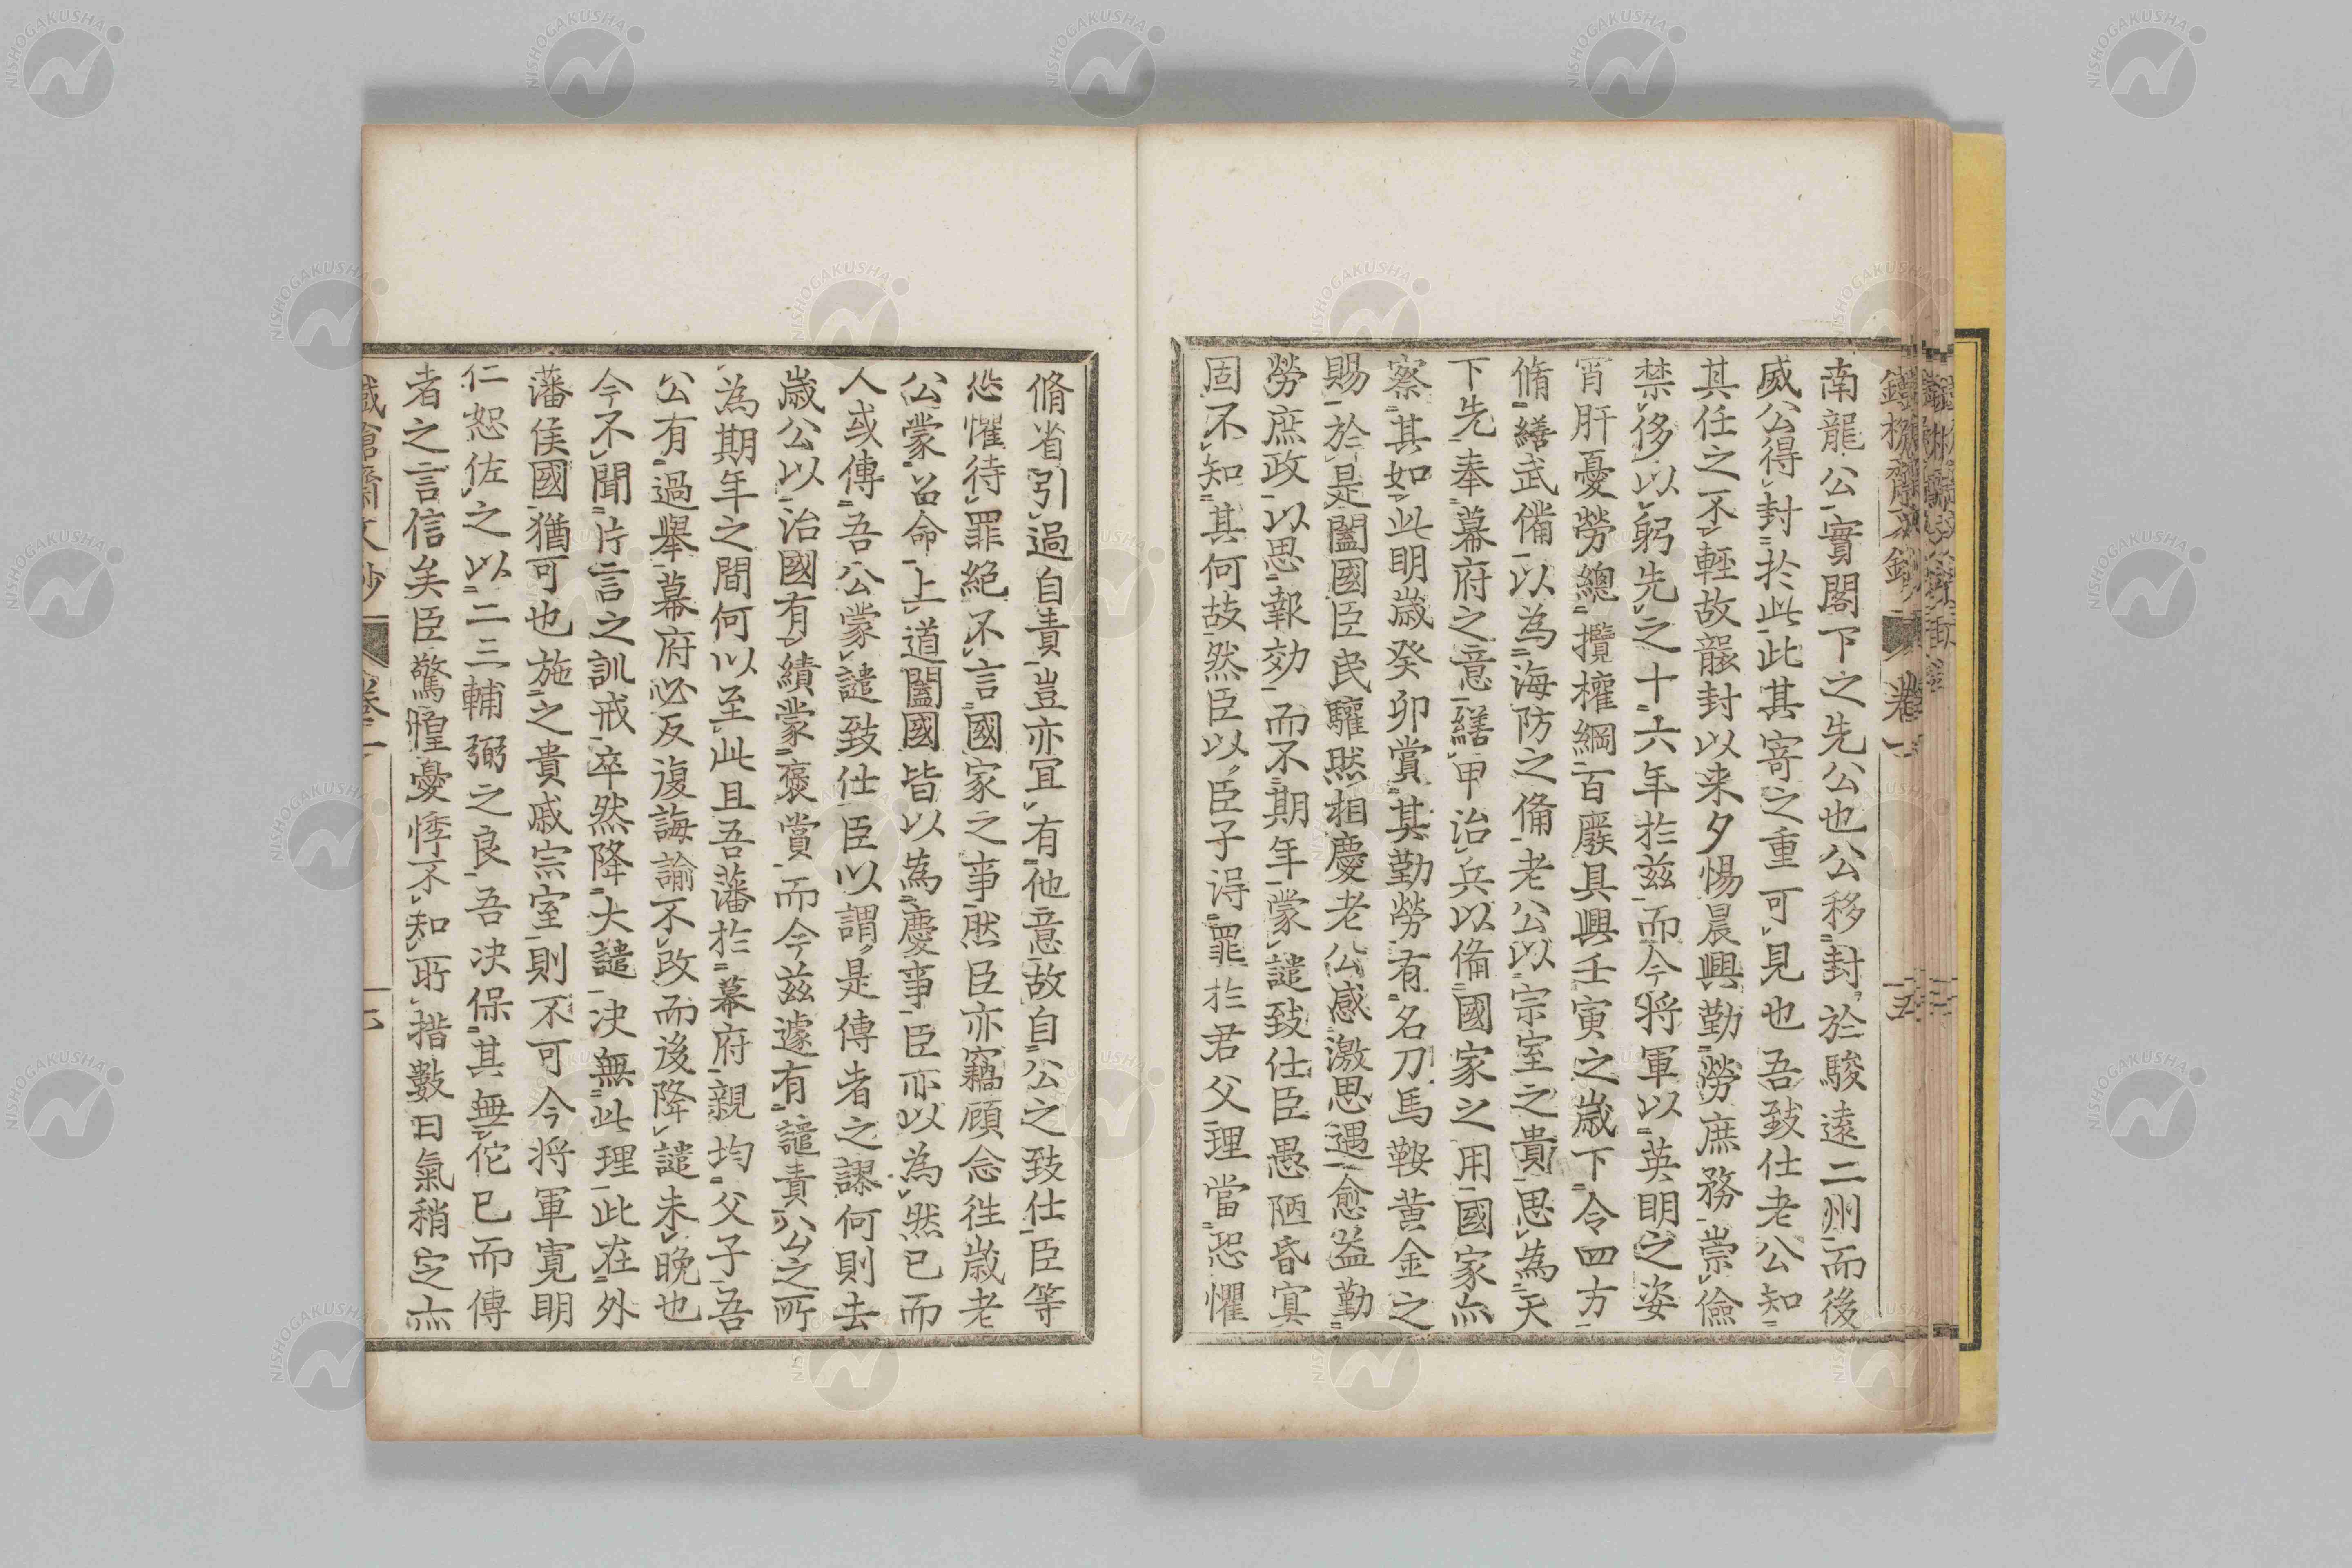 南龍公實閣下之先公也公移封於駿遠二州而後
威公得封於此此其寄之重可見也吾致仕老公知
其任之不輕故襲封以来夕惕晨興勤勞庶務崇儉
禁侈以躬先之十六年於茲而今将軍以英明之姿
宵旰憂勞總攬權綱百廢具興壬寅之歳下令四方
脩繕武備以為海防之備老公以宗室之貴思為天
下先奉幕府之意繕甲治兵以備國家之用國家亦
察其如此明歳癸卯賞其勤勞有名刀馬鞍黄金之
賜於是闔國臣民驩然相慶老公感激思遇愈益勤
勞庶政以思報効而不期年蒙譴致仕臣愚陋昏寞
固不知其何故然臣以臣子得罪於君父理當恐懼
脩省引過自責豈亦冝有他意故自公之致仕臣等
恐懼待罪絶不言國家之事然臣亦竊顧念徃歳老
公蒙召命上道闔國皆以為慶事臣亦以為然已而
人或傳吾公蒙譴致仕臣以謂是傳者之謬何則去
歳公以治國有績蒙褒賞而今茲遽有譴責公之所
為期年之間何以至此且吾藩於幕府親均父子吾
公有過舉幕府必反復誨諭不改而後降譴未晩也
今不聞片言之訓戒卒然降大譴决無此理此在外
藩侯國猶可也施之貴戚宗室則不可今将軍寛明
仁恕佐之以二三輔弼之良吾决保其無佗已而傳
者之言信矣臣驚惶憂悸不知所措數日氣稍定亦